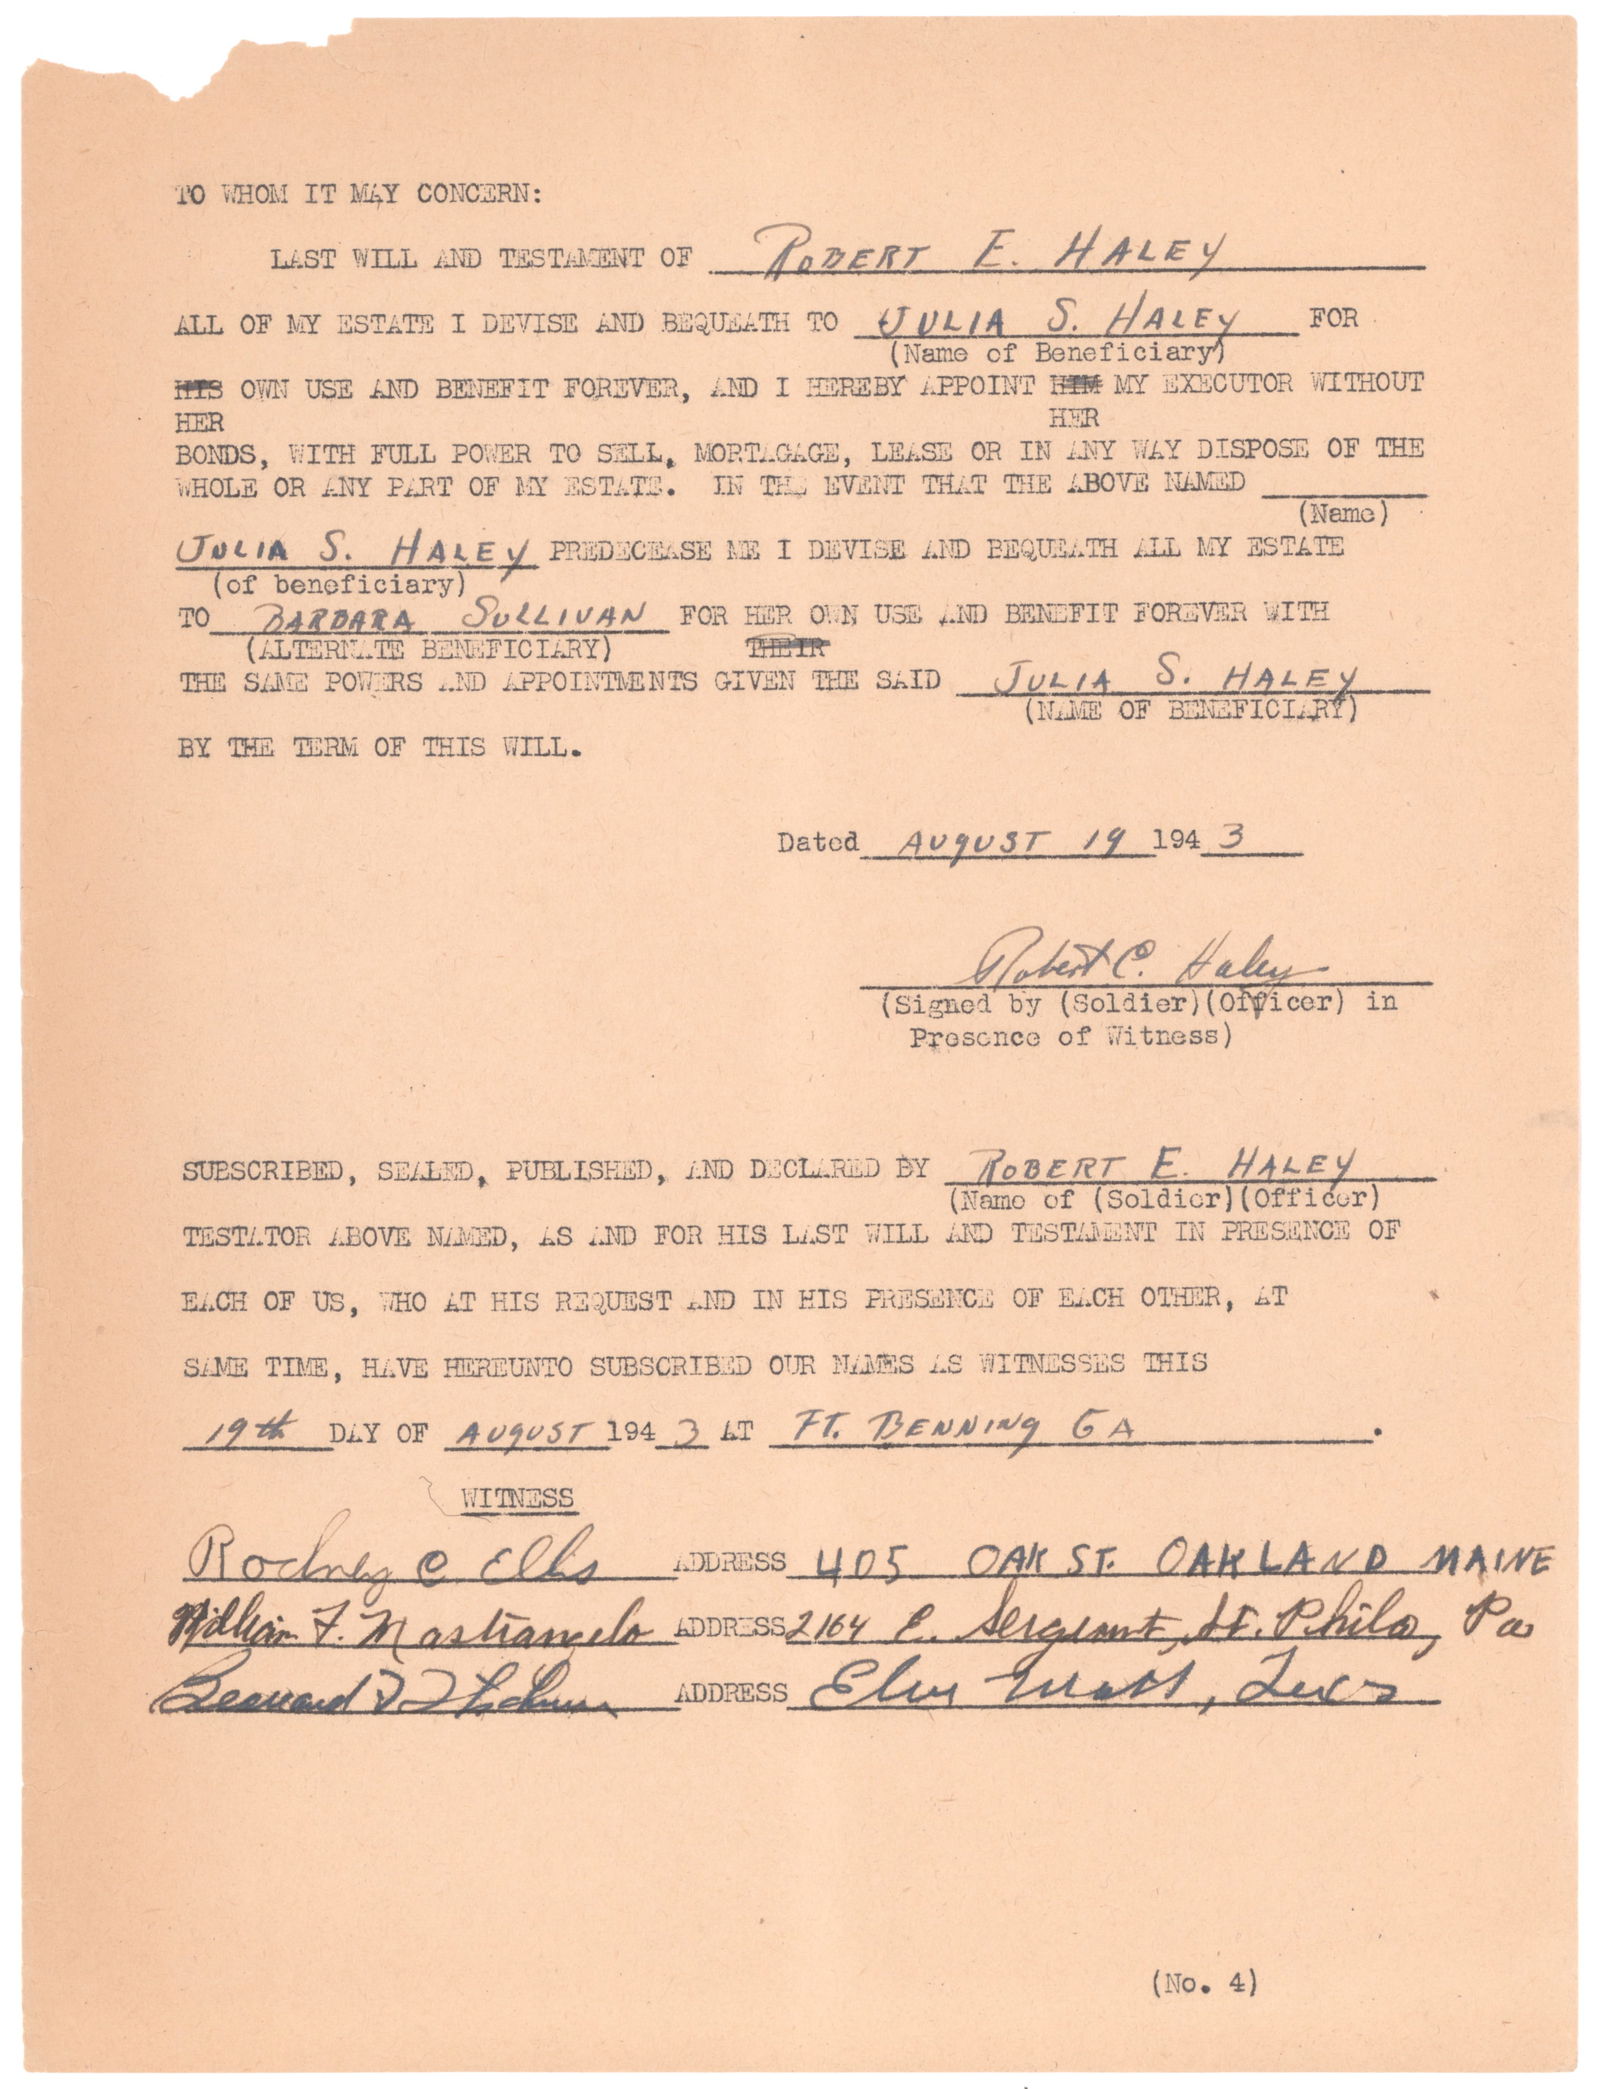 TO WHOM IT MAY CONCERN:
LAST WILL AND TESTAMENT OF ROBERT E. HALEY
ALL OF MY ESTATE I DEVISE AND BEQUEATH TO JULIA S. HALEY FOR
(Name of Beneficiary)
HIS OWN USE AND BENEFIT FOREVER, AND I HEREBY APPOINT HIM MY EXECUTOR WITHOUT
HER HER
BONDS, WITH FULL POWER TO SELL, MORTAGAGE, LEASE OR IN ANY WAY DISPOSE OF THE
WHOLE OR ANY PART OF MY ESTATE. IN THE EVENT THAT THE ABOVE NAMED
(Name)
JULIA S. HALEY PREDECEASE ME I DEVISE AND BEQUEATH ALL MY ESTATE
(of beneficiary)
TO BARBARA SULLIVAN FOR HER OWN USE AND BENEFIT FOREVER WITH
(ALTERNATE BENEFICIARY) THEIR
THE SAME POWERS AND APPOINTMENTS GIVEN THE SAID JULIA S. HALEY
(NAME OF BENEFICIARY)
BY THE TERM OF THIS WILL.
Dated AUGUST 19 1943
Robert E. Haley
(Signed by (Soldier)(Officer) in
Presence of Witness)
SUBSCRIBED, SEALED, PUBLISHED, AND DECLARED BY ROBERT E. HALEY
(Name of (Soldier)(Officer)
TESTATOR ABOVE NAMED, AS AND FOR HIS LAST WILL AND TESTAMENT IN PRESENCE OF
EACH OF US, WHO AT HIS REQUEST AND IN HIS PRESENCE OF EACH OTHER, AT
SAME TIME, HAVE HEREUNTO SUBSCRIBED OUR NAMES AS WITNESSES THIS
19th DAY OF AUGUST 1943 AT FT. BENNING GA.
WITNESS
Rodney C Ellis ADDRESS 405 OAK ST. OAKLAND MAINE
William F. Mastrangelo ADDRESS 2164 E. Sergeant, St. Phila, Pa
ADDRESS Elm Mott, Texas
(No. 4)